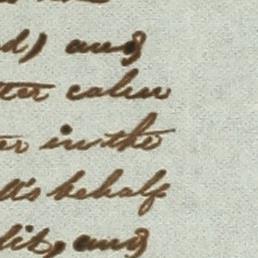 d) and
ter calm
er in the
ll's behalf
dit, and